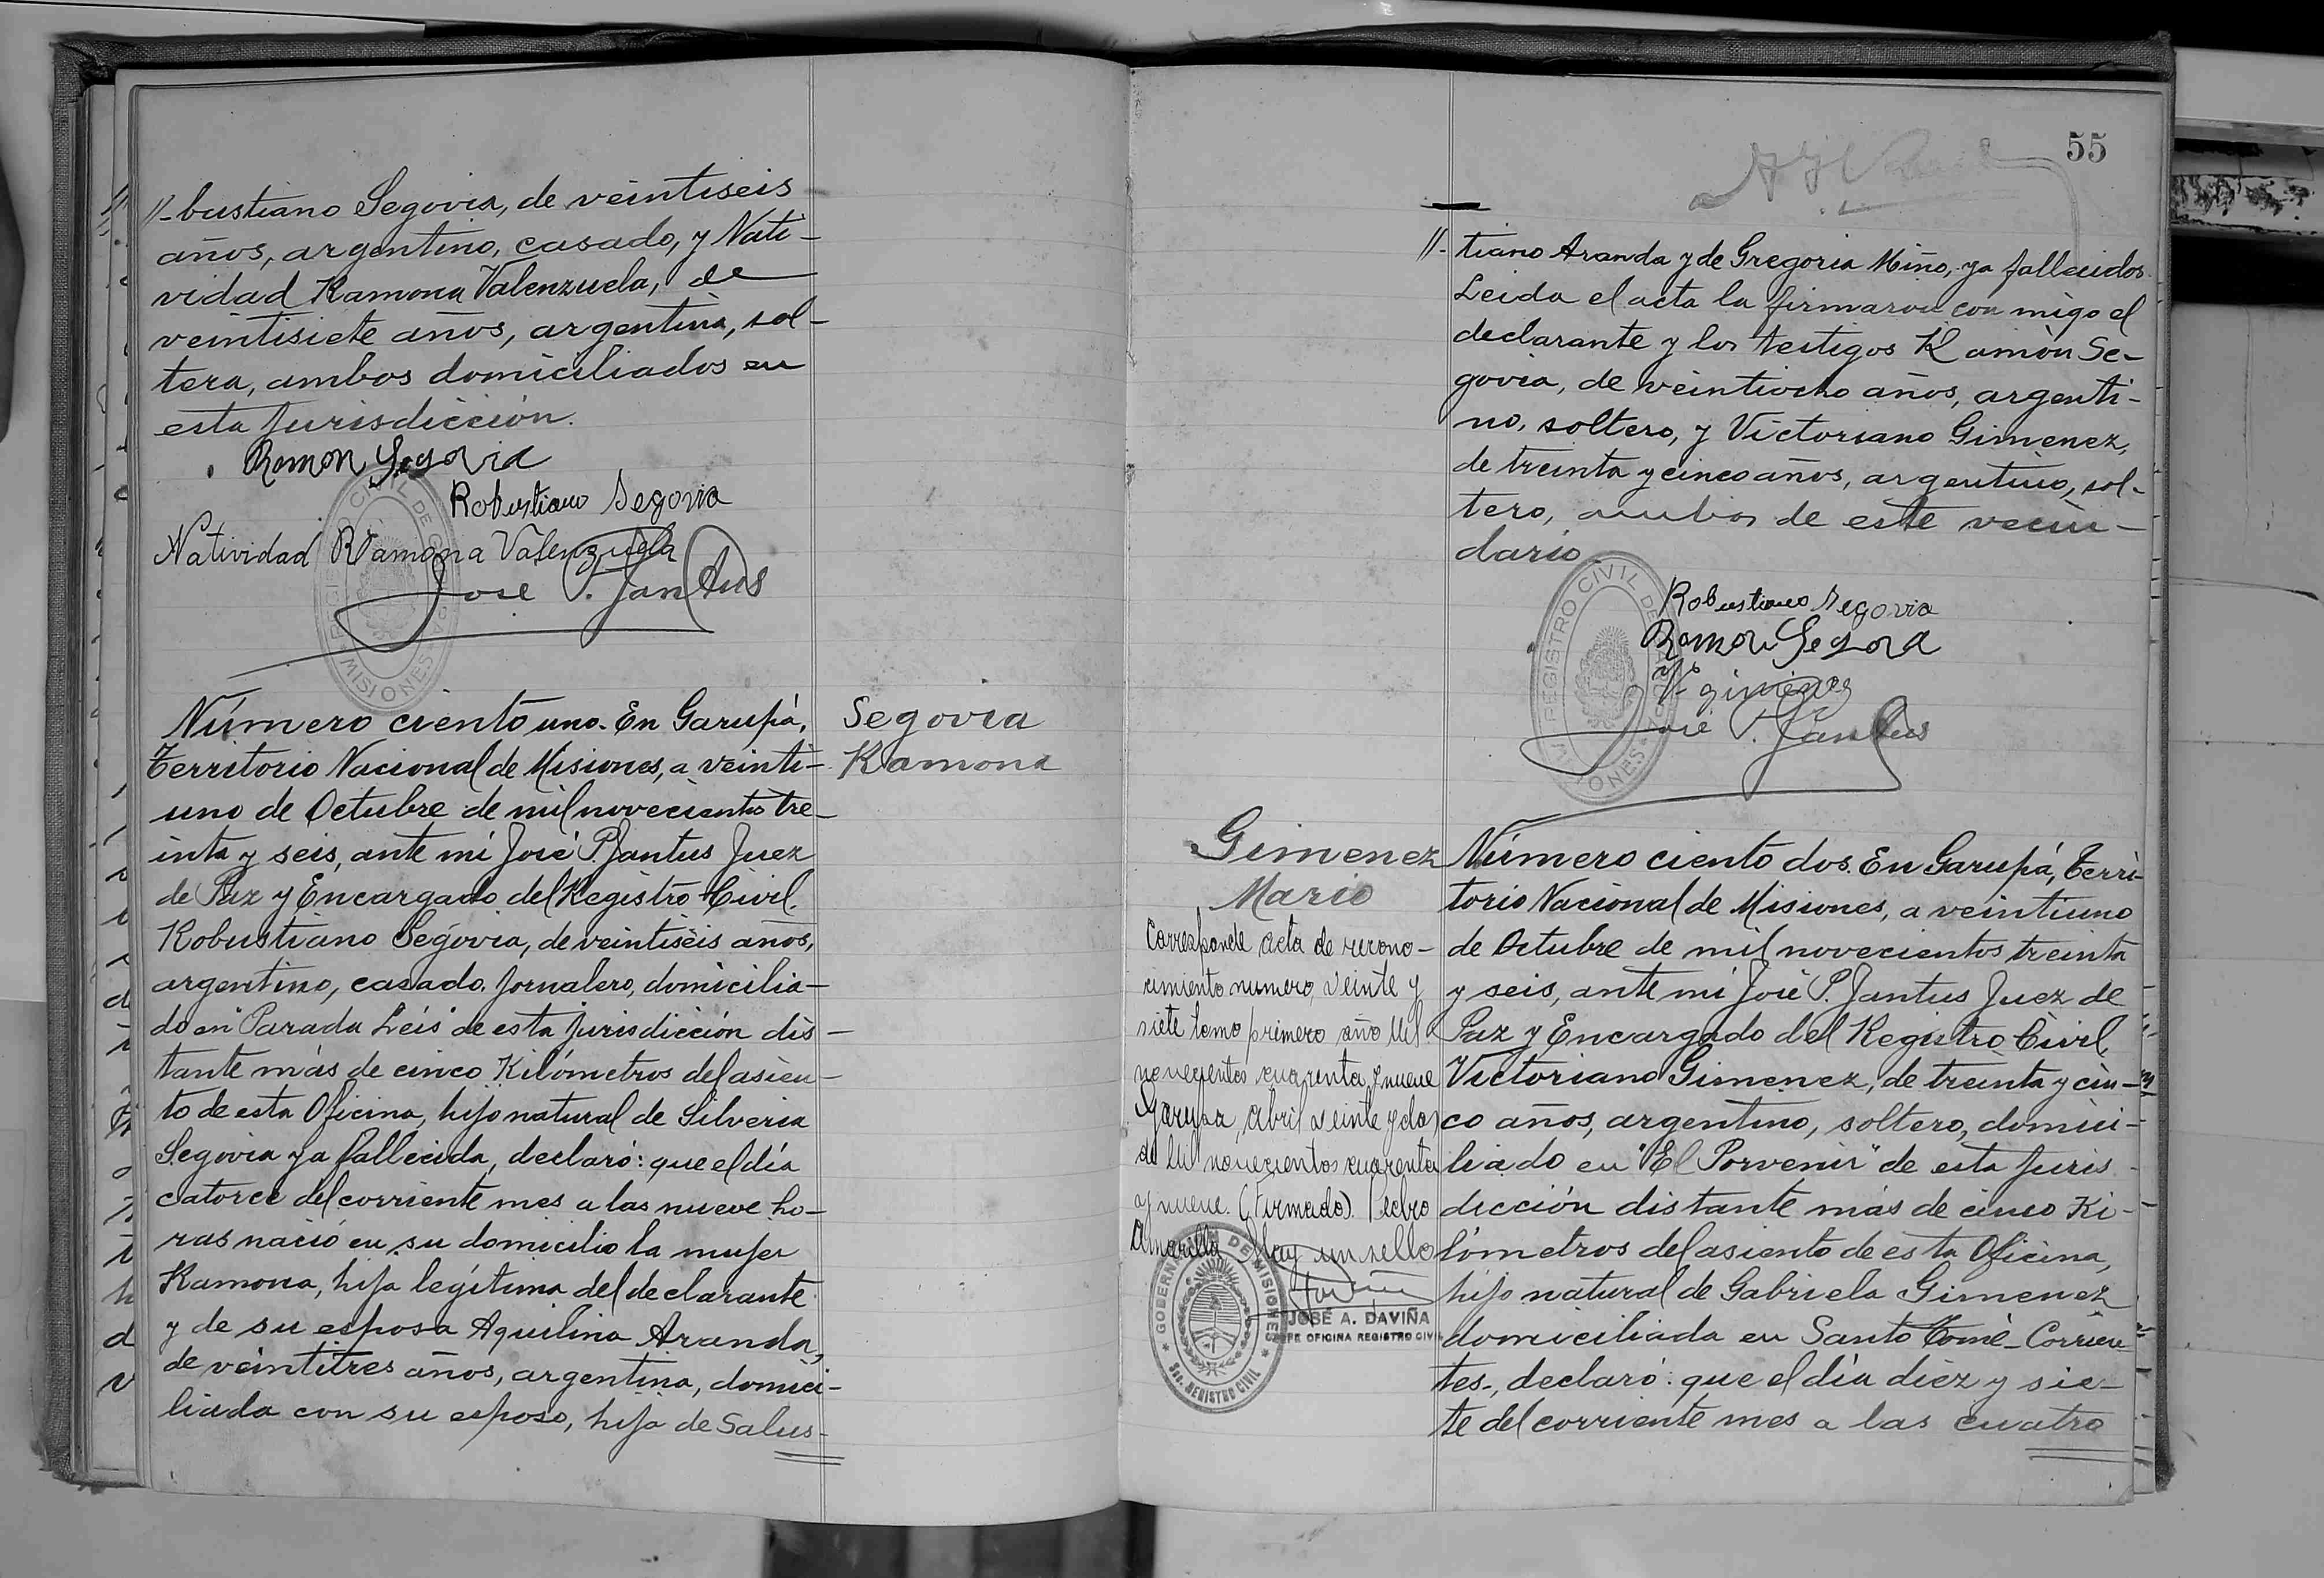 //-bustiano Segovia, de veintiseis
años, argentino, casado, y Nati-
vidad Ramona Valenzuela, de
veintisiete años, argentina, sol-
tera, ambos domiciliados en
esta jurisdicción.
Ramon Segovia
Robustiano Segovia
Natividad Ramona Valenzuela
José P. Jantus
REGISTRO CIVIL DE
MISIONES
Número ciento uno. En Garupá,
Territorio Nacional de Misiones, a veinti-
uno de Octubre de mil novecientos tre-
inta y seis, ante mí José P. Jantus Juez
de Paz y Encargado del Registro Civil.
Robustiano Segovia, de veintiseis años,
argentino, casado, jornalero, domicilia-
do en "Parada Leis" de esta jurisdicción dis-
tante más de cinco Kilómetros del asien-
to de esta Oficina, hijo natural de Silveria
Segovia ya fallecida, declaró: que el día
catorce del corriente mes a las nueve ho-
ras nació en su domicilio la mujer
Ramona, hija legítima del declarante
y de su esposa Aquilina Aranda,
de veintitres años, argentina, domici-
liada con su esposo, hija de Salus-
Segovia
Ramona
55
//- tiano Aranda y de Gregoria Miño, ya fallecidos.
Leida el acta la firmaron con migo el
declarante y los testigos Ramón Se-
govia, de veintiocho años, argenti-
no, soltero, y Victoriano Gimenez,
de treinta y cinco años, argentino, sol-
tero, ambos de este vecin-
dario
Robustiano Segovia
Ramon Segovia
Vº gimenez
José P. Jantus
REGISTRO CIVIL DE
MISIONES
Gimenez
Mario
Corresponde acta de recono-
cimiento numero veinte y
siete tomo primero año Mil
novecientos cuarenta y nueve
Garupa, Abril veinte y dos
de Mil novecientos cuarenta
y nueve. (Firmado). Pedro
Amarilla Hay un sello
JOSÉ A. DAVIÑA
JEFE OFICINA REGISTRO CIVIL
GOBERNACIÓN DE MISIONES
Sec. REGISTRO CIVIL
Número ciento dos. En Garupá, Terri-
torio Nacional de Misiones, a veintiuno
de Octubre de mil novecientos treinta
y seis, ante mí José P. Jantus Juez de
Paz y Encargado del Registro Civil,
Victoriano Gimenez, de treinta y cin-
co años, argentino, soltero, domici-
liado en "El Porvenir" de esta juris-
dicción distante más de cinco Ki-
lómetros del asiento de esta Oficina,
hijo natural de Gabriela Gimenez
domiciliada en Santo Tomé-Corrien-
tes-, declaró: que el día diez y sie-
te del corriente mes a las cuatro